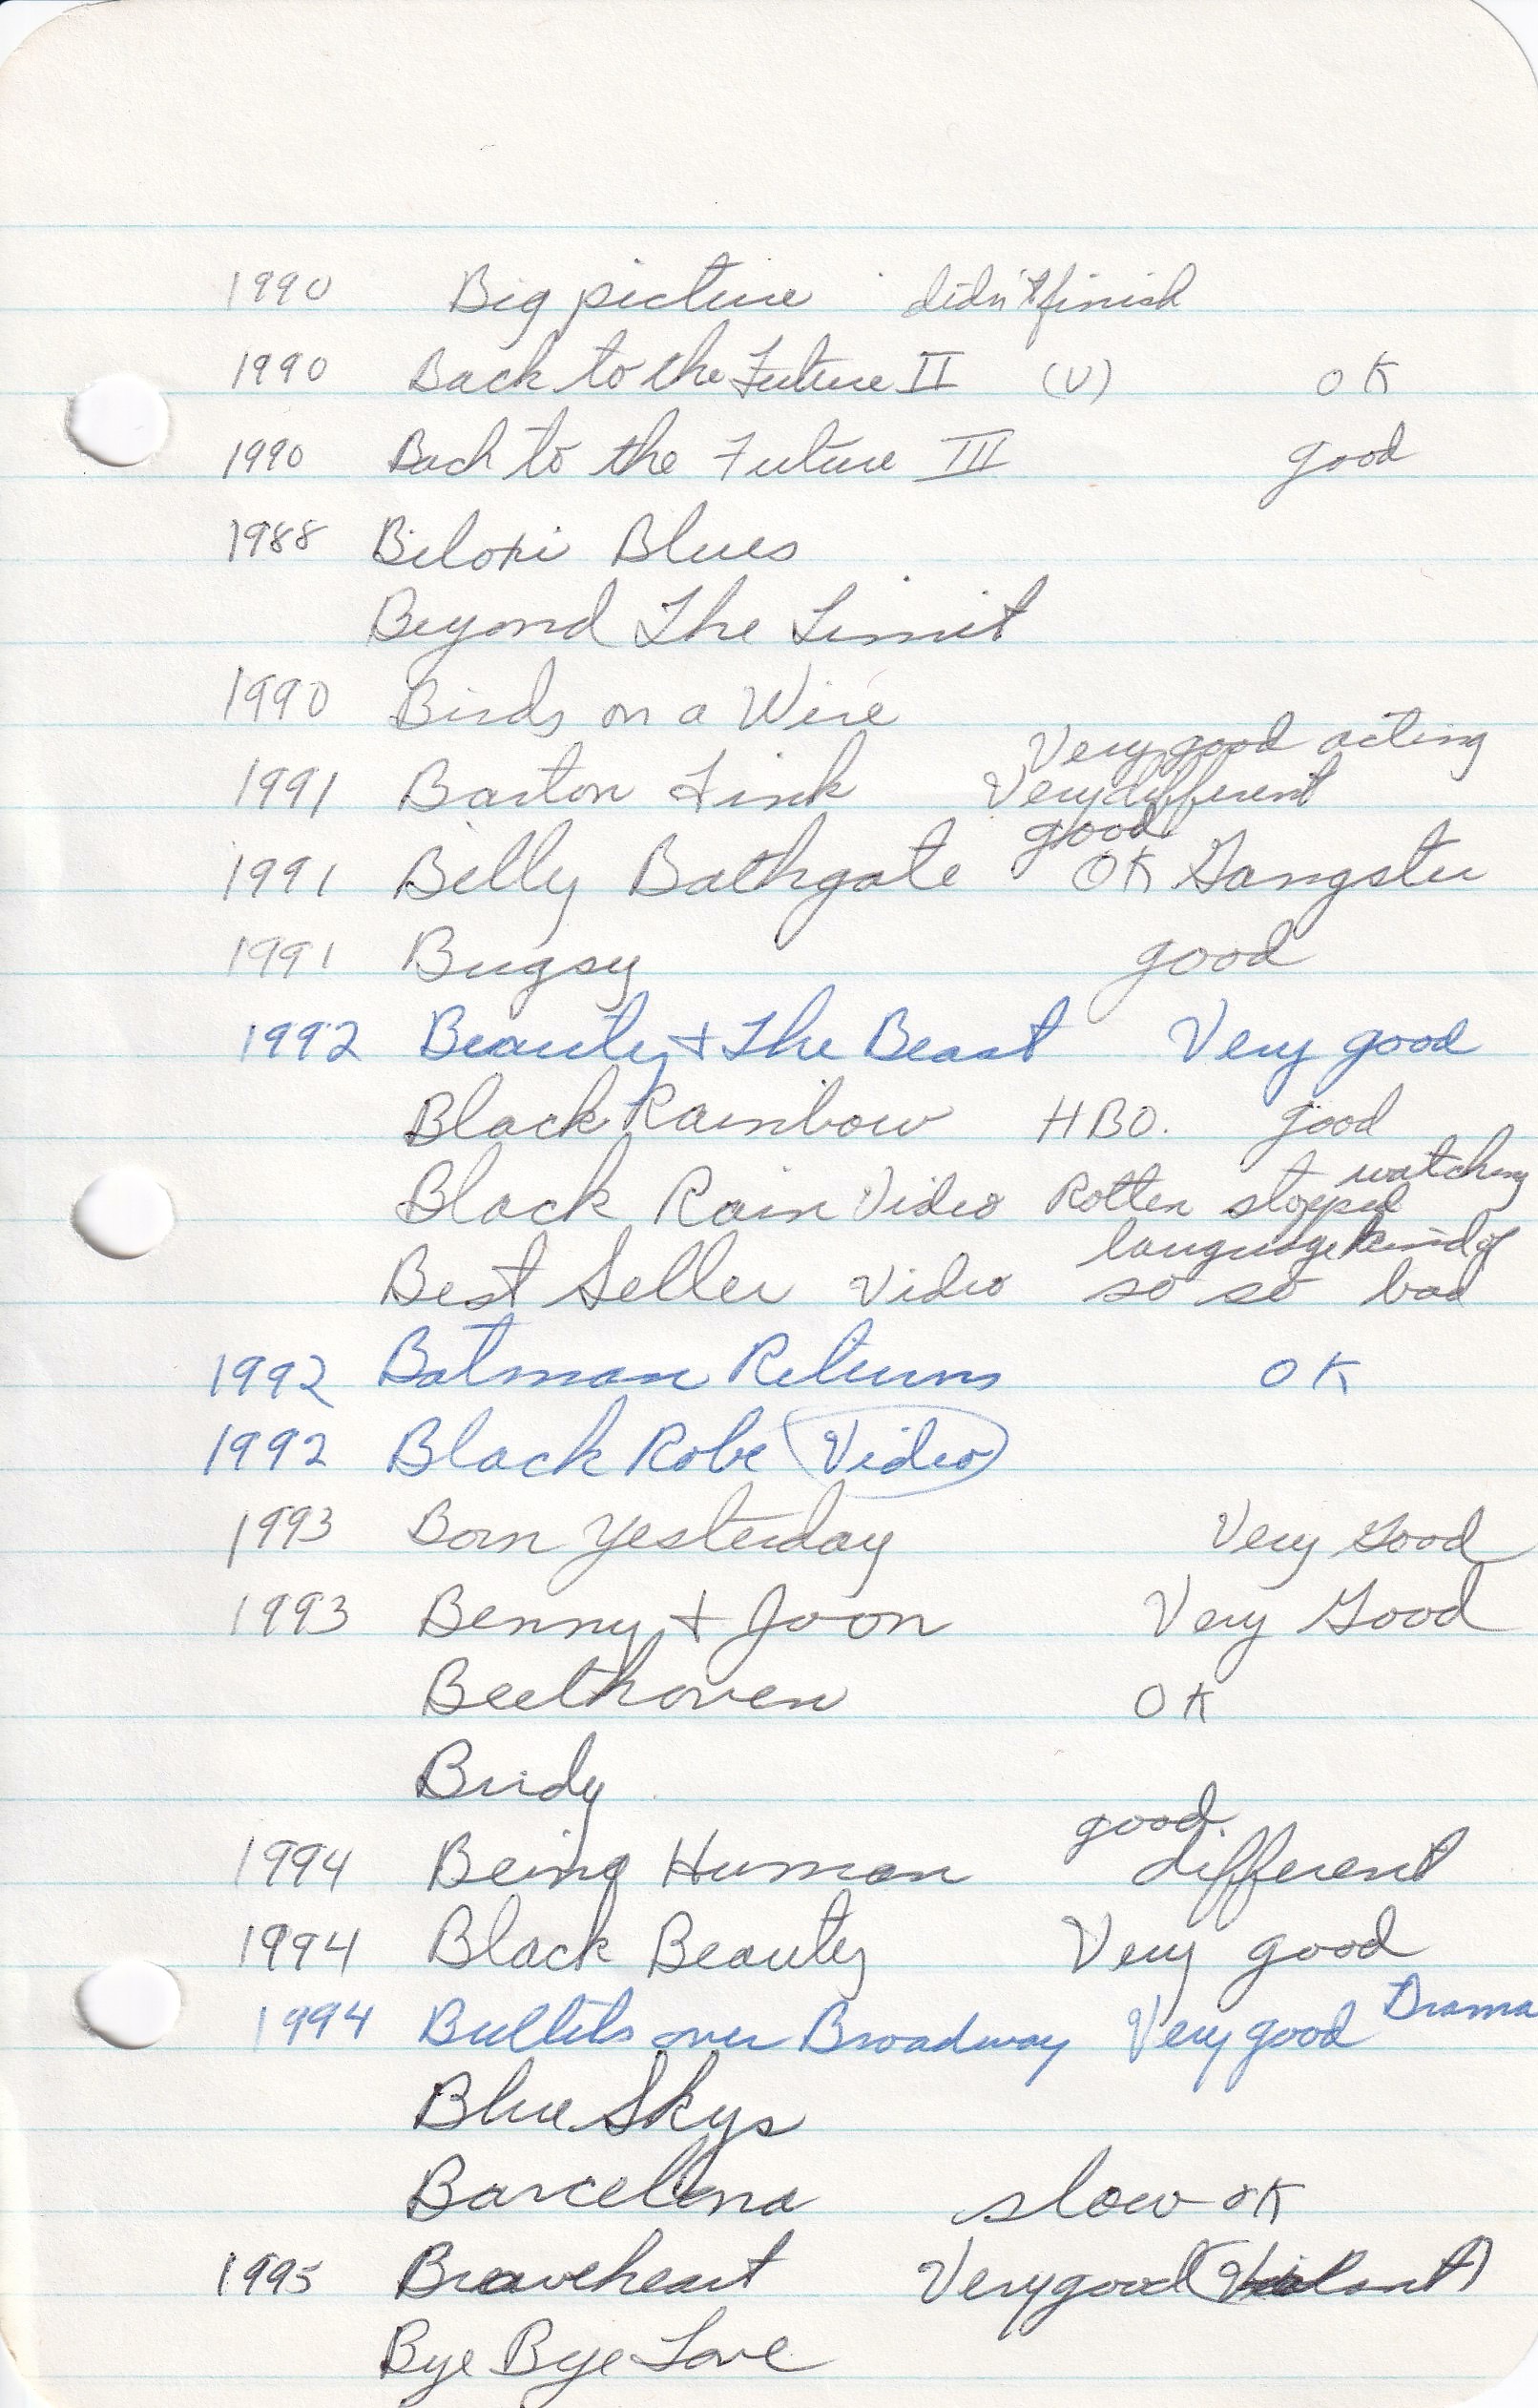 1990 Big picture didn't finish
1990 Back to the Future II (V) OK
1990 Back to the Future III good
1988 Biloxi Blues
Beyond The Limit
1990 Birds on a Wire
Very good acting
1991 Barton Fink Very different
good
1991 Billy Bathgate OK Gangster
1991 Bugsy good
1992 Beauty + The Beast Very good
Black Rainbow HBO. good
watching
Black Rain Video Rotten stopped
language kind of
Best Seller Video so so bad
1992 Batman Returns OK
1992 Black Robe Video
1993 Born Yesterday Very Good
1993 Benny + Joon Very Good
Beethoven OK
Birdy
good
1994 Being Human different
1994 Black Beauty Very good
1994 Bullets over Broadway Very good Drama
Blue Skys
Barcelona slow OK
1995 Braveheart Very good (Violent)
Bye Bye Love